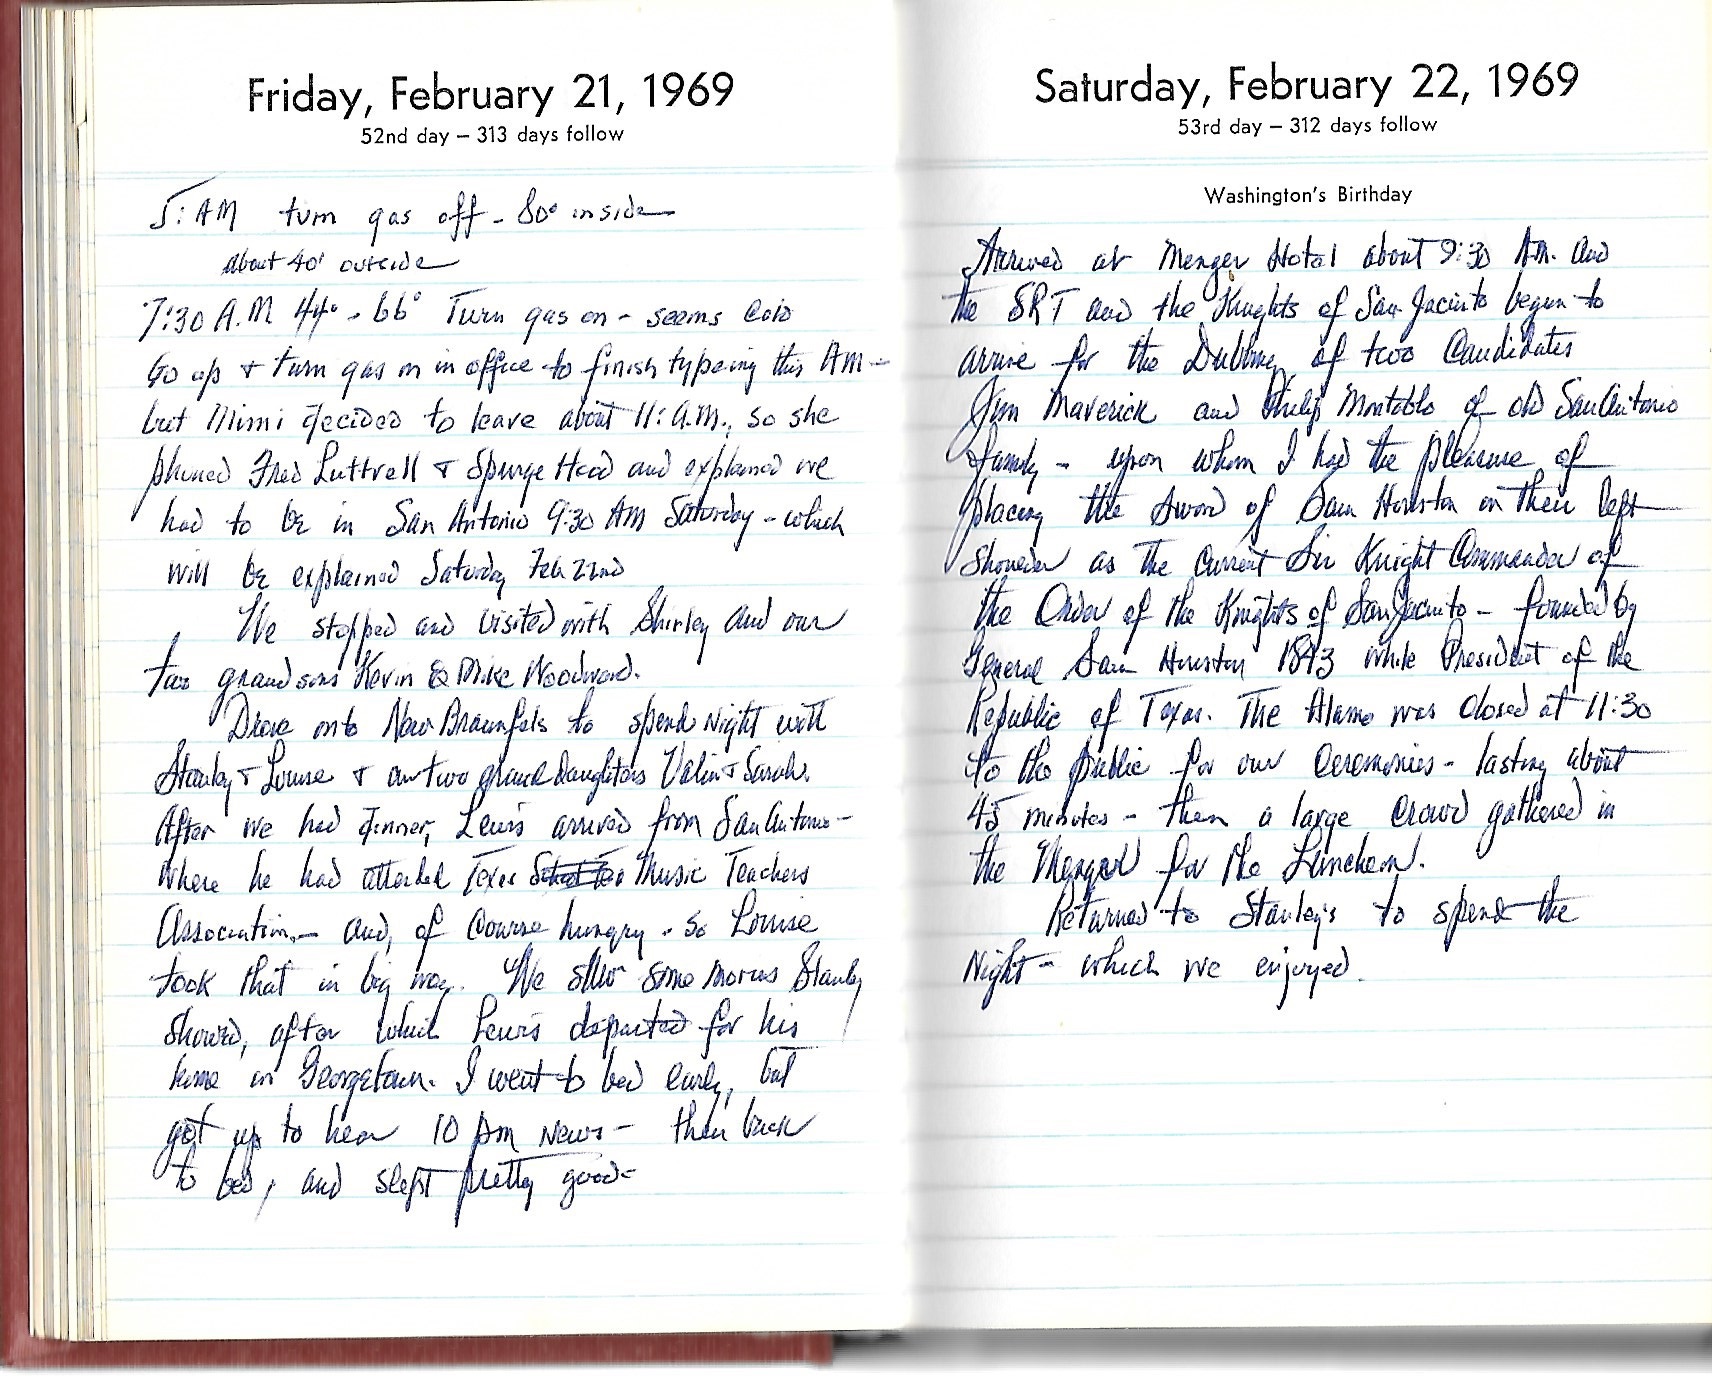 Friday, February 21, 1969
52nd day – 313 days follow
5: AM turn gas off - 80° inside
about 40° outside
7:30 A.M 44° - 66° Turn gas on - seems cold
Go up & turn gas on in office to finish typeing this AM -
but Mimi decided to leave about 11: A.M., so she
phoned Fred Luttrell & Spurge Head and explained we
had to be in San Antonio 9:30 AM Saturday - which
will be explained Saturday Feb 22nd
We stopped and visited with Shirley and our
two grandsons Kevin & Mike Woodward.
Drove onto New Braunfels to spend night with
Stanley & Louise & our two grand daughters Valin & Sarah.
After we had dinner, Lewis arrived from San Antonio -
where he had attended Texas Music Teachers
Association, - and, of course hungry - so Louise
took that in big way. We saw some movies Stanley
showed, after which Lewis departed for his
home in Georgetown. I went to bed early, but
got up to hear 10 pm News - then back
to bed, and slept pretty good -
Saturday, February 22, 1969
53rd day – 312 days follow
Washington's Birthday
Arrived at Menger Hotel about 9:30 AM. and
the SRT and the Knights of San Jacinto began to
arrive for the Dubbing of two Candidates
Jim Maverick and Philip Montablo of old San Antonio
family - upon whom I had the pleasure of
placing the Sword of Sam Houston on their left
shoulder as the current Sir Knight Commander of
the Order of the Knights of San Jacinto - founded by
General Sam Houston 1843 while President of the
Republic of Texas. The Alamo was closed at 11:30
to the public for our Ceremonies - lasting about
45 minutes - then a large crowd gathered in
the Menger for the Luncheon.
Returned to Stanley's to spend the
Night - which we enjoyed.